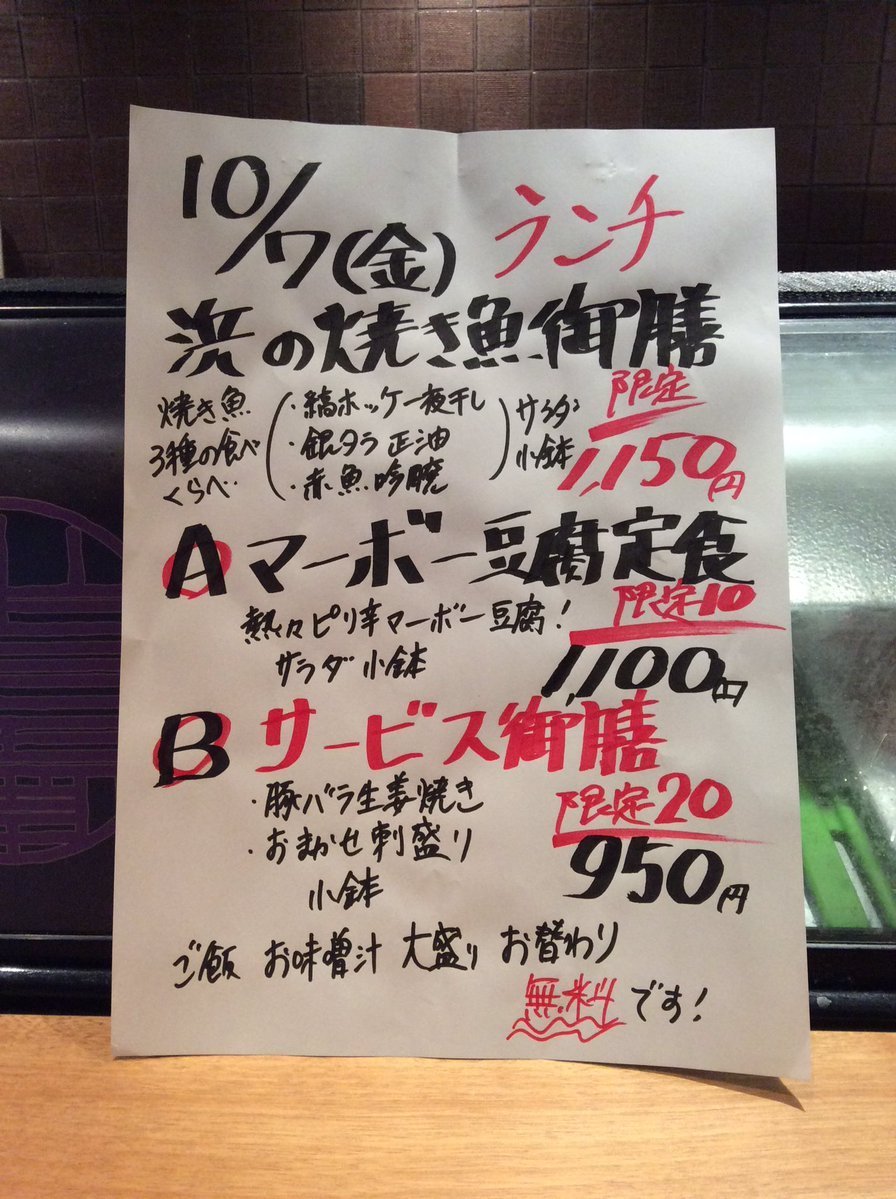 10/7(金) ランチ
浜の焼き魚御膳
焼き魚
3種の食べ
くらべ
・縞ホッケ一夜干し
・銀タラ正油
・赤魚吟醸
サラダ
小鉢
限定
1,150円
A マーボー豆腐定食
熱々ピリ辛マーボー豆腐!
限定10
サラダ 小鉢
1,100円
B サービス御膳
・豚バラ生姜焼き
・おまかせ刺盛り
小鉢
限定20
950円
ご飯 お味噌汁 大盛り お替わり
無料です!